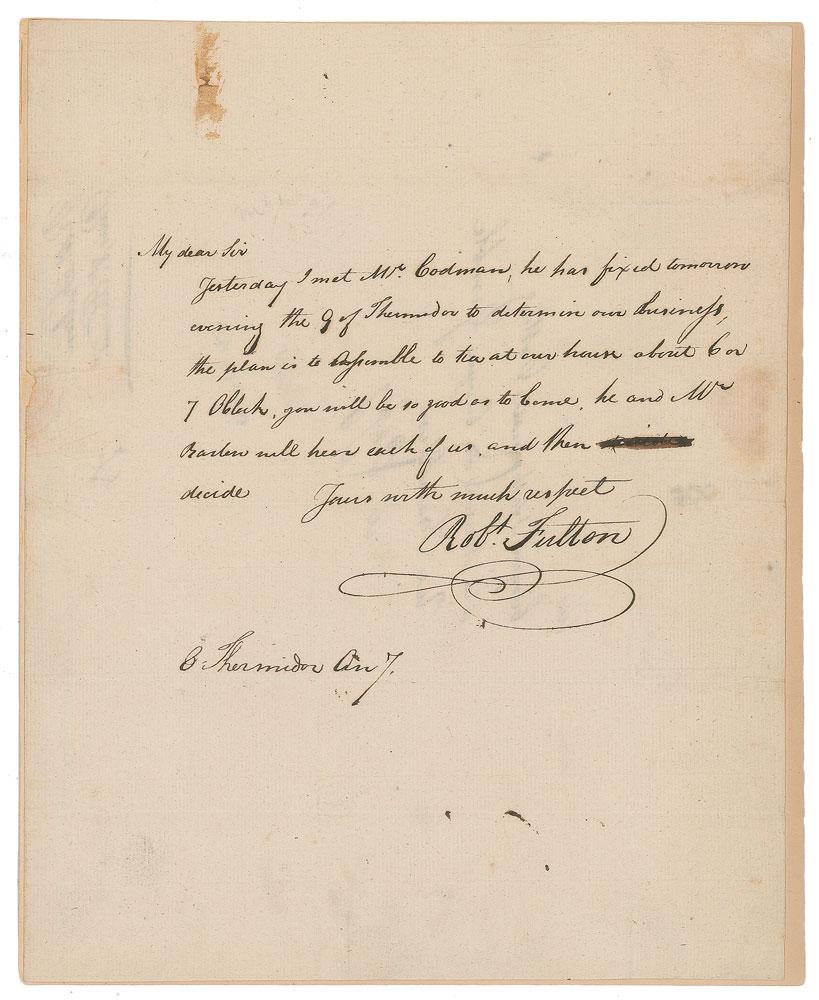 My dear Sir
Yesterday I met Mr. Codman, he has fixed tomorrow
evening the 9 of Thermidor to determin our business,
the plan is to assemble to tea at our house about 6 or
7 Oclock, you will be so good as to Come, he and Mr
Barlow will hear each of us, and then
decide Yours with much respect
Robt. Fulton
8 Thermidor An 7.